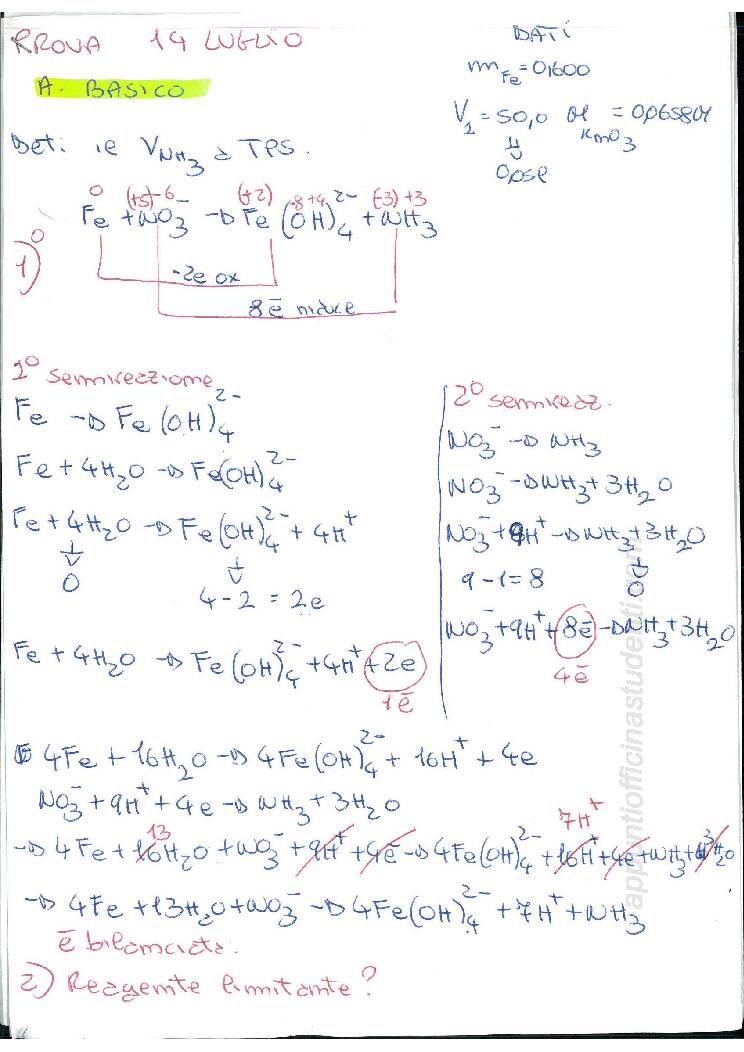 PROVA 14 LUGLIO
A. BASICO
DATI
m Fe = 0,600
V₁ = 50,0 M = 0,06580M
KNO₃
Det. il V NH₃ a TPS.
0 (+5) -6 (+2) -8 +4 (-3) +3
Fe + NO₃⁻ → Fe(OH)₄²⁻ + NH₃
1)° -2e ox
8e⁻ riduce
1° semireazione
Fe → Fe(OH)₄²⁻
Fe + 4H₂O → Fe(OH)₄²⁻
Fe + 4H₂O → Fe(OH)₄²⁻ + 4H⁺
0
4 - 2 = 2e
Fe + 4H₂O → Fe(OH)₄²⁻ + 4H⁺ + 2e
1e⁻
2° semireaz.
NO₃⁻ → NH₃
NO₃⁻ → NH₃ + 3H₂O
NO₃⁻ + 9H⁺ → NH₃ + 3H₂O
9 - 1 = 8 0
NO₃⁻ + 9H⁺ + 8e⁻ → NH₃ + 3H₂O
4e⁻
4Fe + 16H₂O → 4Fe(OH)₄²⁻ + 16H⁺ + 4e
NO₃⁻ + 9H⁺ + 4e → NH₃ + 3H₂O
13 7H⁺ 3
→ 4Fe + 16H₂O + NO₃⁻ + 9H⁺ + 4e⁻ → 4Fe(OH)₄²⁻ + 16H⁺ + 4e + NH₃ + H₂O
→ 4Fe + 13H₂O + NO₃⁻ → 4Fe(OH)₄²⁻ + 7H⁺ + NH₃
è bilanciata.
2) Reagente limitante?
appuntiofficinastudenti.com